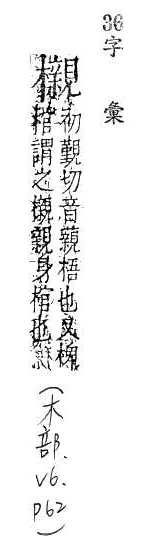 36字彙
初覲切音藽梧也又櫬
棺謂之櫬親身棺也
(木部.v6.p62)